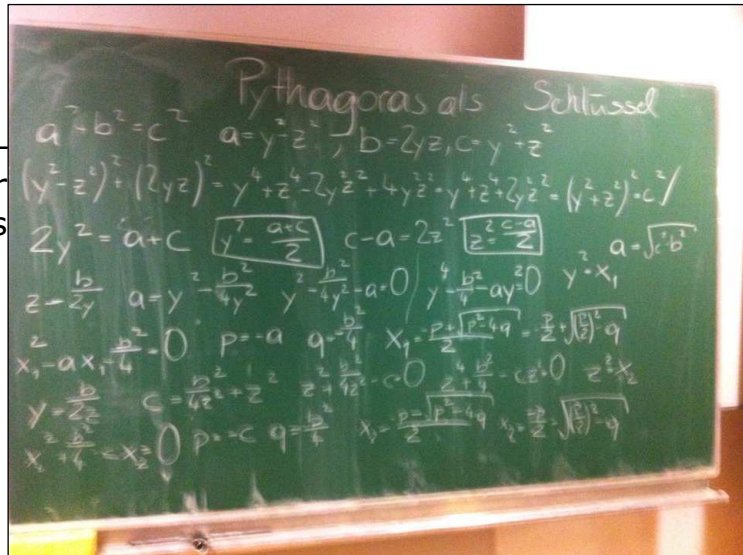 Pythagoras als Schlüssel
a²+b²=c² a=y²-z², b=2yz, c=y²+z²
(y²-z²)²+(2yz)²=y⁴+z⁴-2y²z²+4y²z²=y⁴+z⁴+2y²z²=(y²+z²)²=c²/
2y²=a+c y²=\frac{a+c}{2} c-a=2z² z²=\frac{c-a}{2} a=√(c²-b²)
z=\frac{b}{2y} a=y²-\frac{b²}{4y²} y²-\frac{b²}{4y²}-a=0 y⁴-\frac{b²}{4}-ay²=0 y²=x₁
x₁²-ax₁-\frac{b²}{4}=0 p=-a q=-\frac{b²}{4} x₁=\frac{-p+√(p²-4q)}{2}=-\frac{p}{2}+√((\frac{p}{2})²-q)
y=\frac{b}{2z} c=\frac{b²}{4z²}+z² z²+\frac{b²}{4z²}-c=0 z⁴+\frac{b²}{4}-cz²=0 z²=x₂
x₂²+\frac{b²}{4}-cx₂=0 p=-c q=\frac{b²}{4} x₂=\frac{-p-√(p²-4q)}{2} x₂=-\frac{p}{2}-√((\frac{p}{2})²-q)